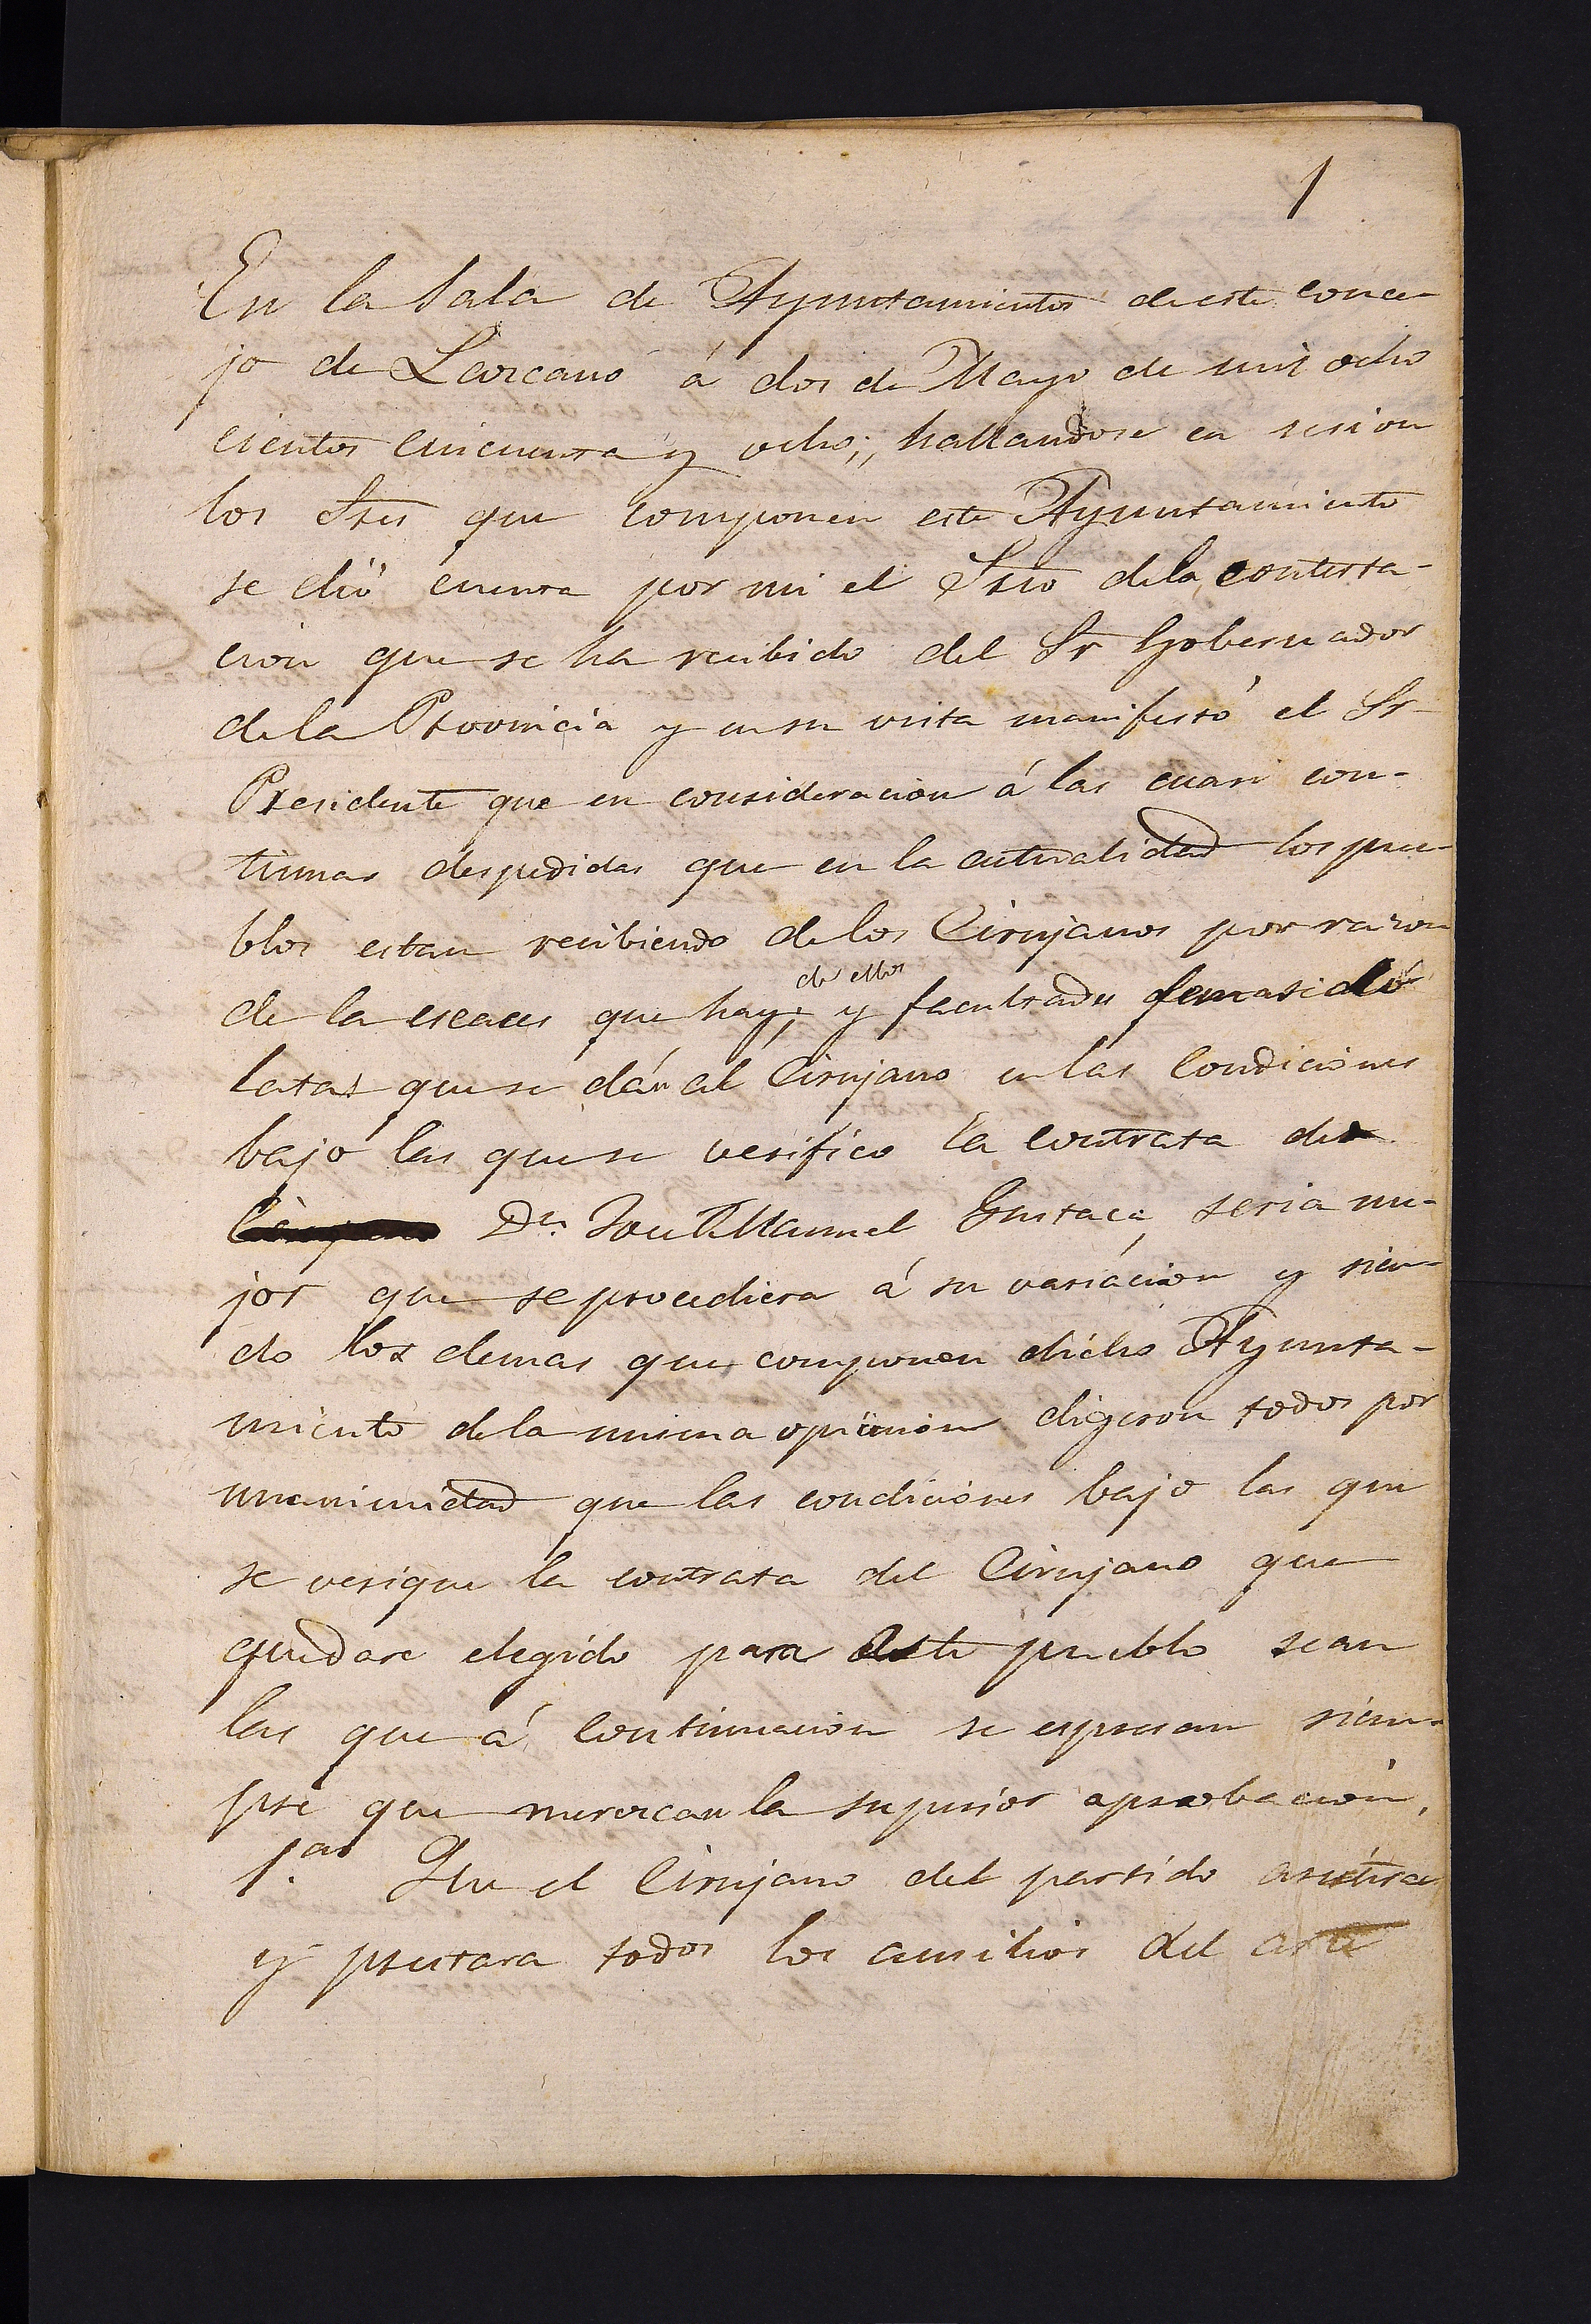 1
En la Sala de Ayuntamiento de este conce-
jo de Lazcano á dos de Mayo de mil ocho
cientos cincuenta y ocho; hallandose en sesion
los Sres que componen este Ayuntamiento
se dió cuenta por mi el Srio dela contesta-
cion que se ha recibido del Sr Gobernador
dela Provincia y en su vista manifestó el Sr
Presidente que en consideracion á las cuasi con-
tinuas despedidas que en la actualidad los pue-
blos estan recibiendo delos Cirujanos por razon
de ellos
de la escaces que hay; y facultades demasiado
latas que se dán al Cirujano en las condiciones
bajo las que se verifico la contrata de
Dn. José Manuel seria me-
jor que se procediera á su variacion y sien-
do los demas que componen dicho Ayunta-
miento dela misma opinion digeron todos por
unanimidad que las condiciones bajo las que
se verique la contrata del Cirujano que
quedare elegido para este pueblo sean
las que á continuacion se espresan siem-
pre que merezcan la superior aprobacion.
1.a Que el Cirujano del partido asistira
y prestara todos los ausilios del arte